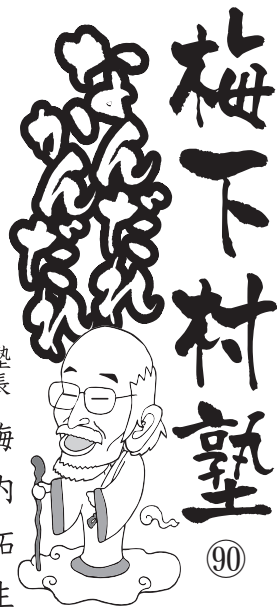 梅下村塾
なんだれ
かんだれ
90
塾長 梅内拓生